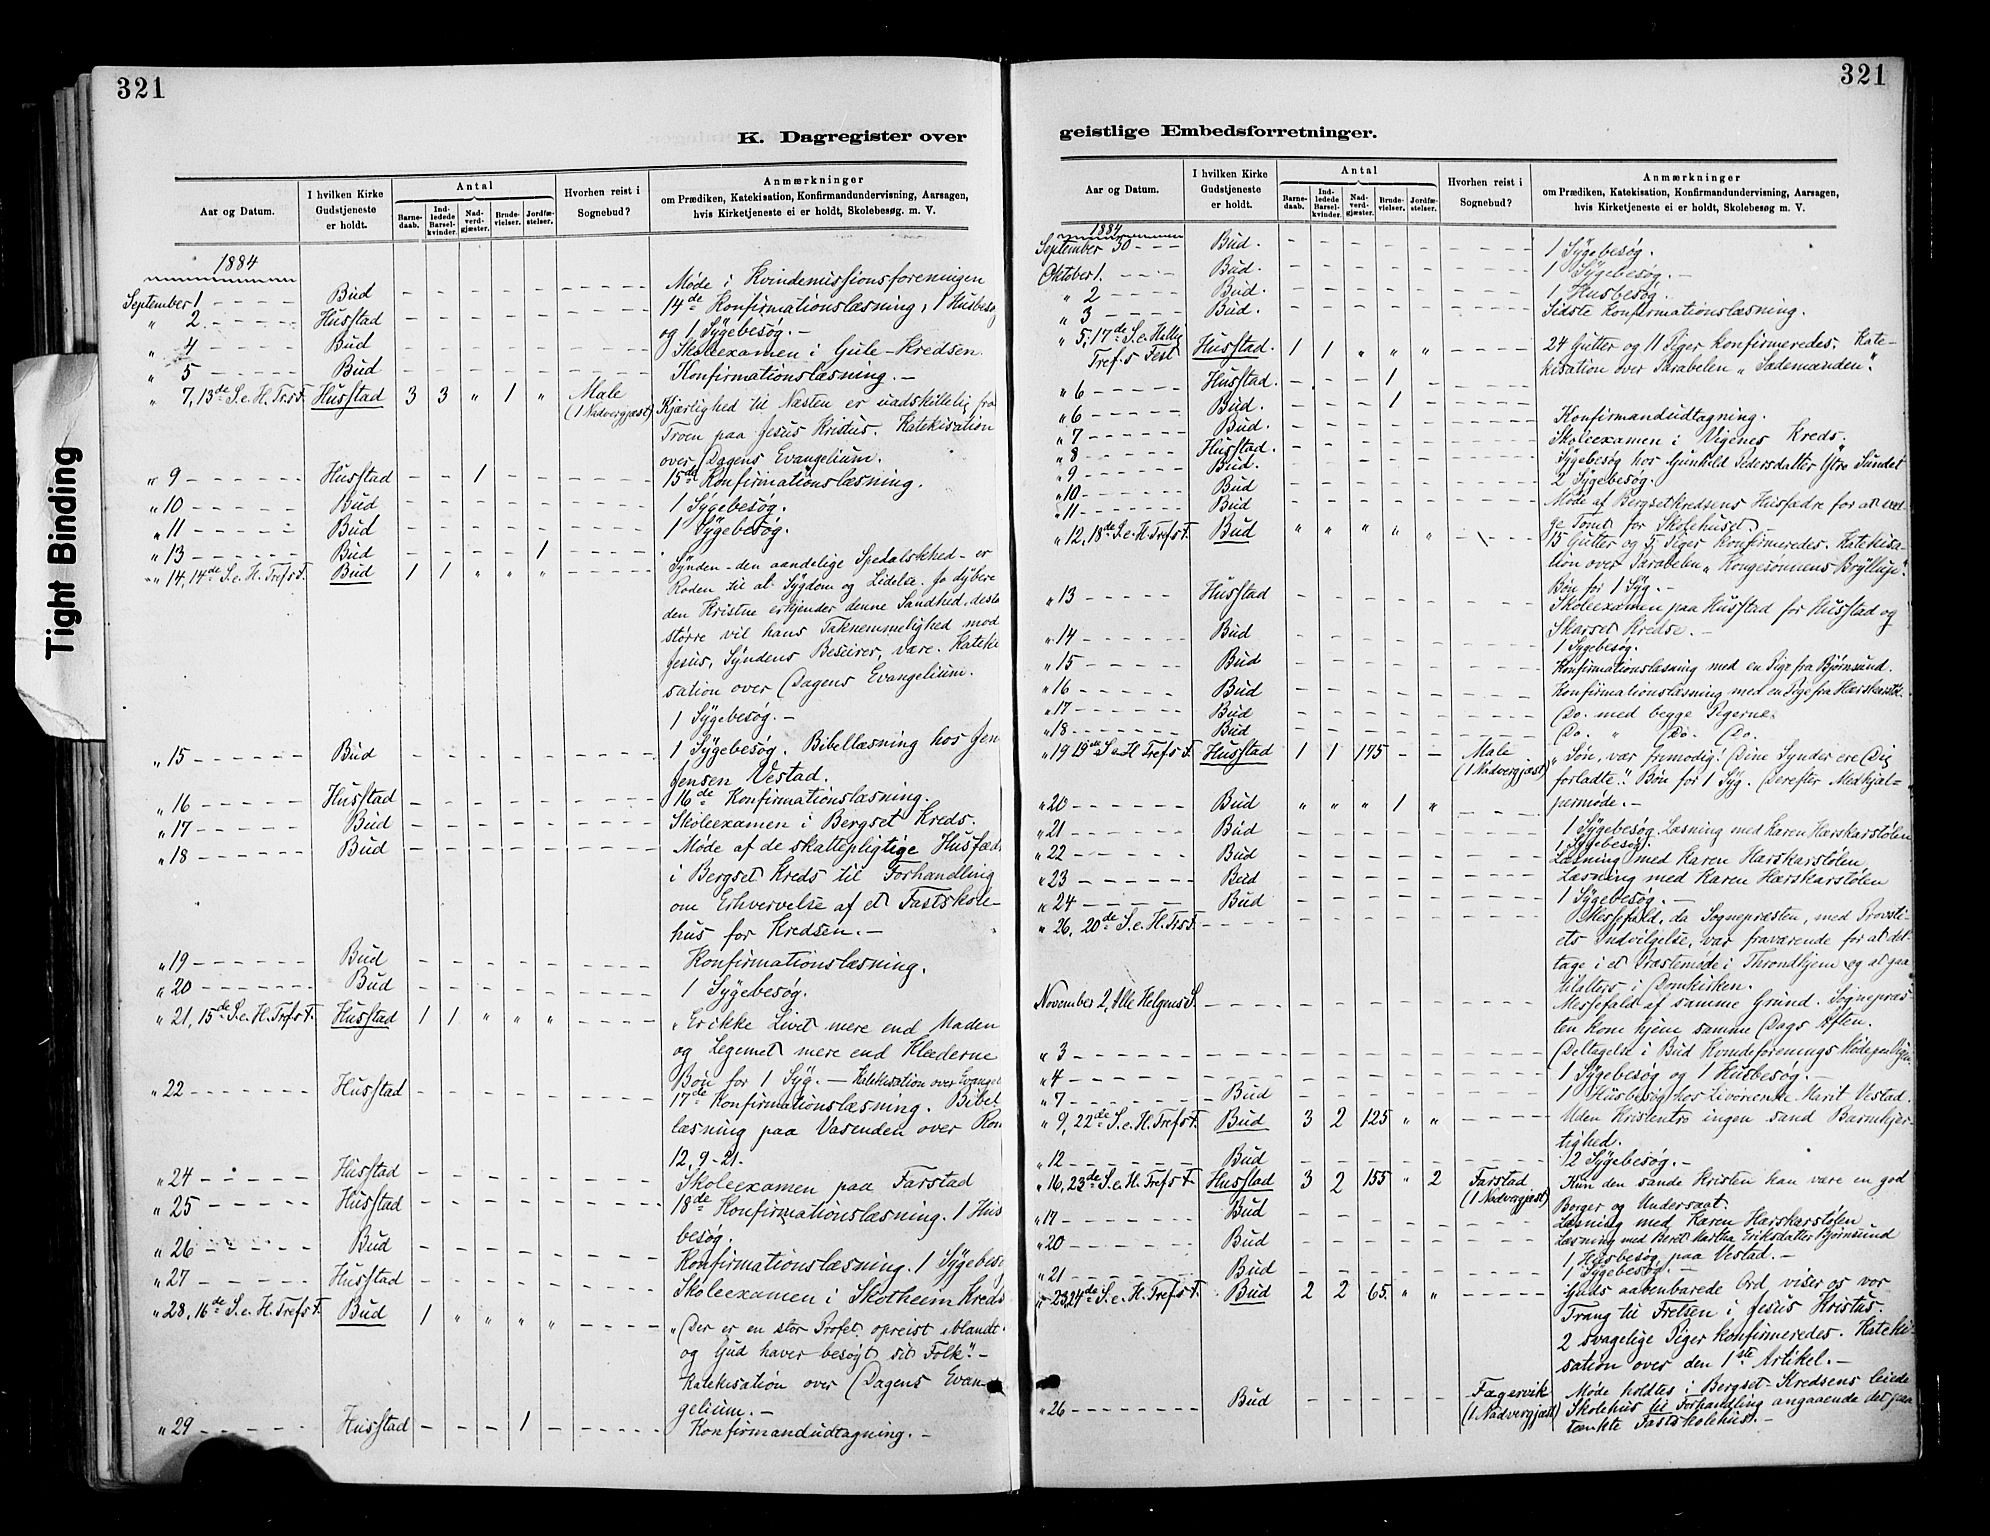 321
K. Dagregister over
Aar og Datum.
I hvilken Kirke Gudstjeneste er holdt.
Antal
Barne-daab.
Ind-ledede Barsel-kvinder.
Nad-verd-gjæster.
Brude-vielser.
Jordfæ-stelser.
Hvorhen reist i Sognebud?
Anmærkninger
om Prædiken, Katekisation, Konfirmandundervisning, Aarsagen, hvis Kirketjeneste ei er holdt, Skolebesøg m. V.
1884
September 1 Bud Møde i Kvindemissionsforeningen
" 2 Husstad 14de Konfirmationslæsning, 1 Husbesøg
og 1 Sygebesøg. -
" 4 Bud Skoleexamen i Gule-Kredsen
" 5 Bud Konfirmationslæsning. -
" 7, 13de S. e. H. Trs.F. Husstad 3 3 " 1 " Male Kjærlighed til Næsten er uadskillelig fra
(1 Nadvergjæst) Troen paa Jesus Kristus. Katekisation
over Dagens Evangelium.
" 9 Husstad - - 1 15de Konfirmationslæsning.
" 10 Bud 1 Sygebesøg.
" 11 Bud 1 Sygebesøg.
" 13 Bud - - - - 1
" 14, 14de S. e. H. Trefs F. Bud 1 1 " " " Synden - den aandelige Spedalskhed - er
Roden til al Sygdom og Lidelse. Jo dybere
den Kristne erkjender denne Sandhed, desto
større vil hans Taknemmelighed mod
Jesus, Syndens Beseirer, være. Kateki
sation over Dagens Evangelium.
1 Sygebesøg. -
" 15 Bud 1 Sygebesøg. Bibellæsning hos Jens
Jensen Vestad.
" 16 Husstad 16de Konfirmationslæsning.
" 17 Bud Skoleexamen i Bergset Kreds.
" 18 Bud Møde af de skattepligtige Husfæd
i Bergset Kreds til Forhandling
om Erhvervelse af et Fastskole-
hus for Kredsen. -
" 19 Bud Konfirmationslæsning.
" 20 Bud 1 Sygebesøg.
" 21, 15de S. e. H. Trefs F. Husstad 1 1 " " " "Er ikke Livet mere end Maden
og Legemet mere end Klæderne
Bøn for 1 Syg. - Katekisation over Evangel
" 22 Husstad 17de Konfirmationslæsning. Bibel
læsning paa Vasenden over Rom
12, 9-21.
" 24 Husstad Skoleexamen paa Farstad
" 25 Husstad 18de Konfirmationslæsning. 1 Hus
besøg.
" 26 Bud Konfirmationslæsning. 1 Sygebesø
" 27 Husstad Skoleexamen i Skotheim Kreds
" 28, 16de S. e. H. Trefs F. Bud 1 " " " " "Der er en stor Profet opreist iblandt
og Gud haver besøgt sit Folk". -
Katekisation over Dagens Evan-
gelium. -
" 29 Husstad - - - 1 - Konfirmandudtagning. -
321
geistlige Embedsforretninger.
Aar og Datum.
I hvilken Kirke Gudstjeneste er holdt.
Antal
Barne-daab.
Ind-ledede Barsel-kvinder.
Nad-verd-gjæster.
Brude-vielser.
Jordfæ-stelser.
Hvorhen reist i Sognebud?
Anmærkninger
om Prædiken, Katekisation, Konfirmandundervisning, Aarsagen, hvis Kirketjeneste ei er holdt, Skolebesøg m. V.
1884
September 30 Bud. 1 Sygebesøg.
Oktober 1. Bud. 1 Sygebesøg. -
" 2 Bud. 1 Husbesøg.
" 3 Bud. Sidste Konfirmationslæsning.
" 5, 17de S. e. Hellig
Tref.s Fest Husstad. 1 1 " " " 24 Gutter og 11 Piger konfirmeredes. Kate-
kisation over Parabelen "Sædemanden".
" 6 Husstad. - - - 1 -
" 6 Bud. - - - 1 -
" 7 Bud. Konfirmandudtagning.
" 8 Husstad. Skoleexamen i Vigenes Kreds.
" 9 Bud. Sygebesøg hos Gunhild Pedersdatter Ytre Sundet
" 10 Bud 2 Sygebesøg.
" 11 Bud Møde af Bergsetkredsens Husfædre for at væl-
ge Tomt for Skolehuset. -
" 12, 18de S. e. H. Trefs F. Bud " " " " " 15 Gutter og 5 Piger konfirmeredes. Katekisa-
tion over Parabelen "Kongesønnens Bryllup".
Bøn for 1 Syg. -
" 13 Husstad Skoleexamen paa Husstad for Husstad og
Skarset Kredse. -
" 14 Bud 1 Sygebesøg.
" 15 Bud Konfirmationslæsning med en Pige fra Bjørnsund.
" 16 Bud Konfirmationslæsning med en Pige fra Harskarstøl.
" 17 Bud Do. med begge Pigerne.
" 18 Bud Do. " Do. Do.
" 19 19de S. e. H. Trefs F. Husstad 1 1 175 - - Male "Søn, vær frimodig! Dine Synder ere Dig
(1 Nadvergjæst) forladte". Bøn for 1 Syg. Derefter Medhjæl-
permøde. -
" 20 Bud " " " 1 "
" 21 Bud 1 Sygebesøg. Læsning med Karen Harskarstølen
" 22 Bud 1 Sygebesøg.
Læsning med Karen Harskarstølen
" 23 Bud Læsning med Karen Hærskarstølen
" 24 Bud 1 Sygebesøg. -
" 26, 20de S. e. H. Trs F. Messefald, da Sognepræsten, med Provsti-
ets Indvilgelse, var fraværende for at del-
tage i et Præstemøde i Throndhjem og at gaa
tilalters i Domkirken.
November 2, Alle Helgens S. Messefald af samme Grund. Sognepræs-
ten kom hjem samme Dags Aften.
" 3 Deltagelse i Bud Kvindeforenings Møde paa
" 4 1 Sygebesøg og 1 Husbesøg. -
" 7 Bud 1 Husbesøg hos Livøreenke Marit Vestad.
" 9, 22de S. e. H. Trefs F. Bud 3 2 125 " " Uden Kristentro ingen sand Barmhjer-
tighed.
" 12 Bud 2 Sygebesøg. -
" 16, 23de S. e. H. Trefs F. Husstad 3 2 155 " 2 Farstad Kun den sande Kristen kan være en god
(1 Nadvergjæst) Borger og Undersaat.
" 17 Bud Læsning med Karen Harskarstølen
" 20 Bud Læsning med Beret Martha Eriksdatter Bjørnsund
1 Husbesøg paa Vestad. -
" 21 Bud 1 Sygebesøg. -
" 23 24de S. e. H. Trefs F. Bud 2 2 65 " " Guds aabenbarede Ord viser os vor
Trang til Frelsen i Jesus Kristus.
2 svagelige Piger konfirmeredes. Kateki
sation over den 1ste Artikel. -
" 26 Bud Fægervik Møde holdtes i Bergset-Kredsens leiede
(1 Nadvergjæst) Skolehus til Forhandling angaaende det paa
tænkte Fastskolehus. -
Tight Binding